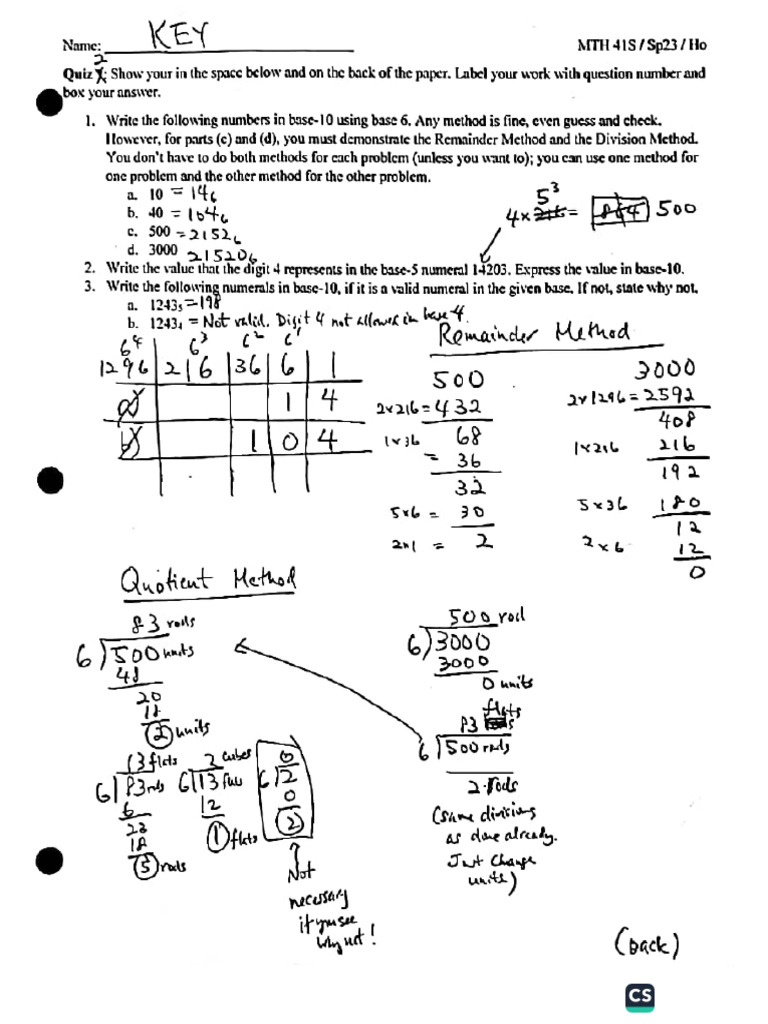 Name: KEY MTH 41S / Sp23 / Ho
2
Quiz 1: Show your in the space below and on the back of the paper. Label your work with question number and
box your answer.
1. Write the following numbers in base-10 using base 6. Any method is fine, even guess and check.
However, for parts (c) and (d), you must demonstrate the Remainder Method and the Division Method.
You don't have to do both methods for each problem (unless you want to); you can use one method for
one problem and the other method for the other problem.
a. 10 = 14₆
b. 40 = 104₆
c. 500 = 2152₆
d. 3000 21520₆
5³
4 x 216 = 864 500
2. Write the value that the digit 4 represents in the base-5 numeral 14203. Express the value in base-10.
3. Write the following numerals in base-10, if it is a valid numeral in the given base. If not, state why not.
a. 1243₅ = 198
b. 1243₄ = Not valid. Digit 4 not allowed in base 4.
6⁴ 6³ 6² 6¹
1296 216 36 6 1
a) 1 4
b) 1 0 4
Remainder Method
500
2x216 = 432
1x36 68
= 36
32
5x6 = 30
2x1 = 2
3000
2x1296 = 2592
408
1x216 216
192
5x36 180
12
2x6 12
0
Quotient Method
83 rods
6)500 units
48
20
18
2 units
13 flats
6)83 rods
6
23
18
5 rods
2 cubes
6)13 flats
12
1 flats
0
6)2
0
2
Not
necessary
if you see
why not!
500 rod
6)3000
3000
0 units
flats
83
6)500 rods
2 rods
(same divisions
as done already.
Just change
units)
(back)
CS